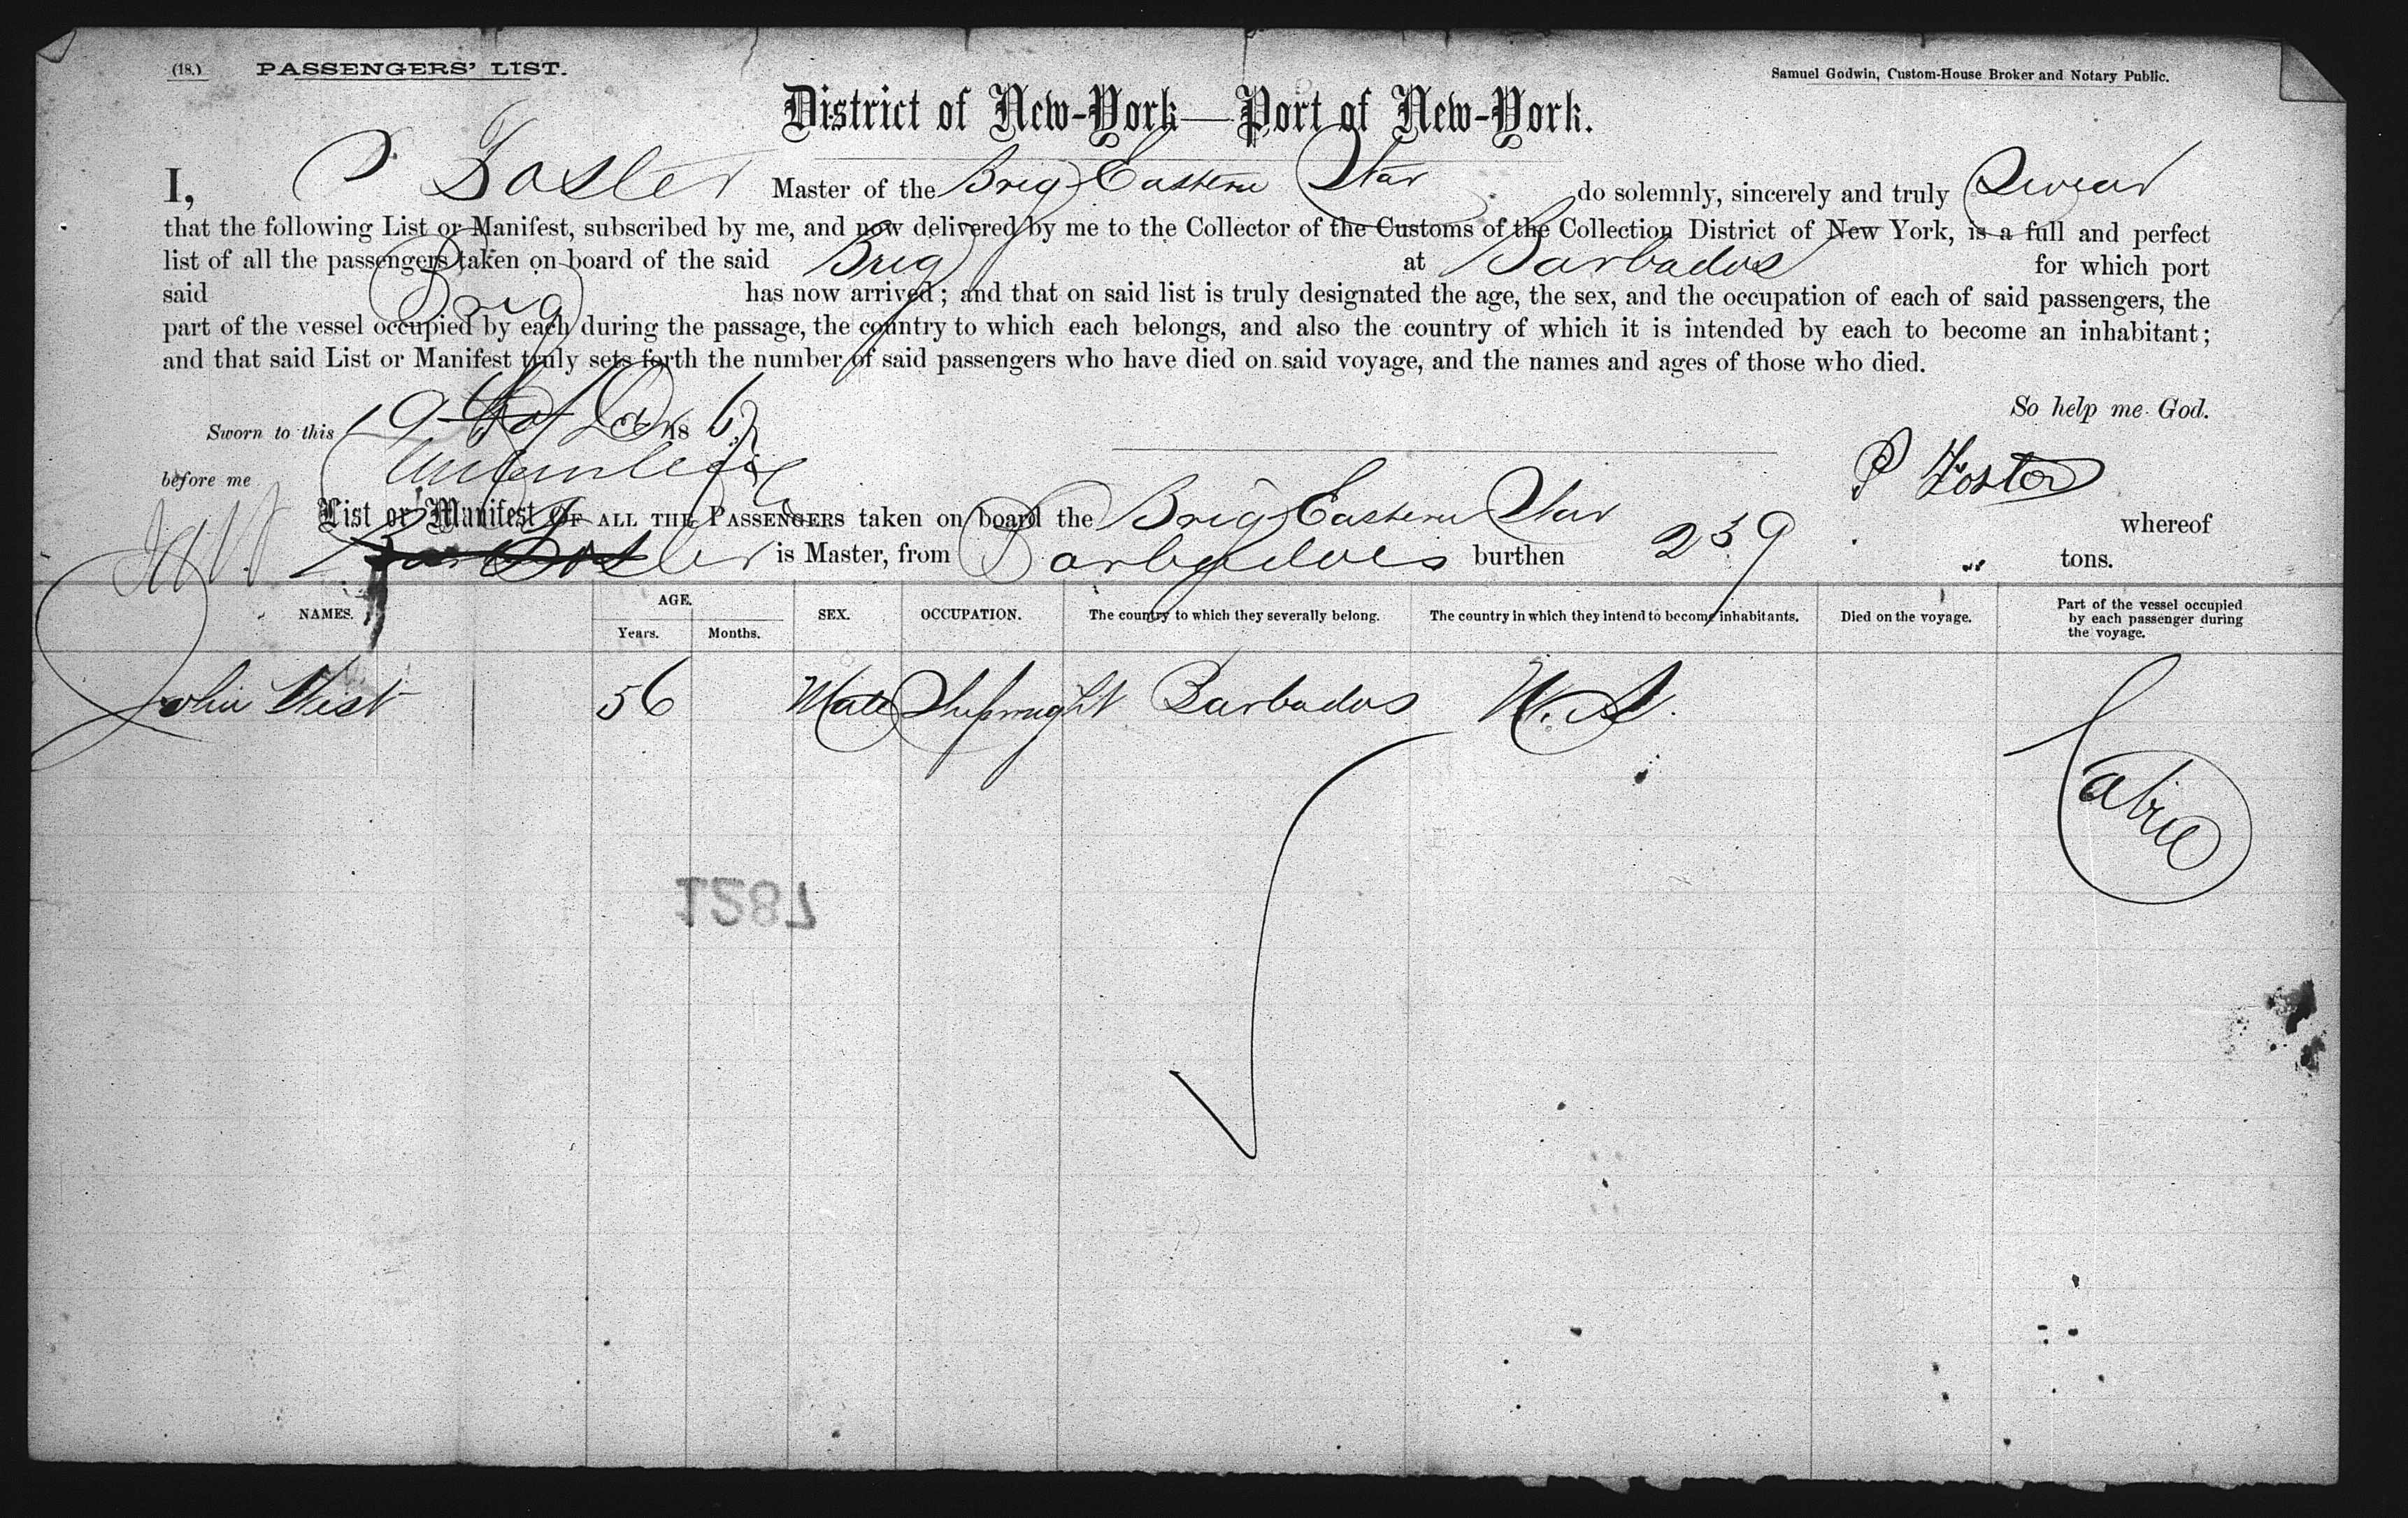 (18.) PASSENGERS' LIST. Samuel Godwin, Custom-House Broker and Notary Public.
District of New-York—Port of New-York.
I, P Foster Master of the Brig Eastern Star do solemnly, sincerely and truly Swear
that the following List or Manifest, subscribed by me, and now delivered by me to the Collector of the Customs of the Collection District of New York, is a full and perfect
list of all the passengers taken on board of the said Brig at Barbados for which port
said Brig has now arrived; and that on said list is truly designated the age, the sex, and the occupation of each of said passengers, the
part of the vessel occupied by each during the passage, the country to which each belongs, and also the country of which it is intended by each to become an inhabitant;
and that said List or Manifest truly sets forth the number of said passengers who have died on said voyage, and the names and ages of those who died.
So help me God.
Sworn to this 19th of 18 6
before me P Foster
List or Manifest OF ALL THE PASSENGERS taken on board the Brig Eastern Star whereof
Foster is Master, from Barbadoes burthen 239 tons.
NAMES. AGE. SEX. OCCUPATION. The country to which they severally belong. The country in which they intend to become inhabitants. Died on the voyage. Part of the vessel occupied by each passenger during the voyage.
Years. Months.
John West 56 Male Shipwright Barbados
Cabin
1287